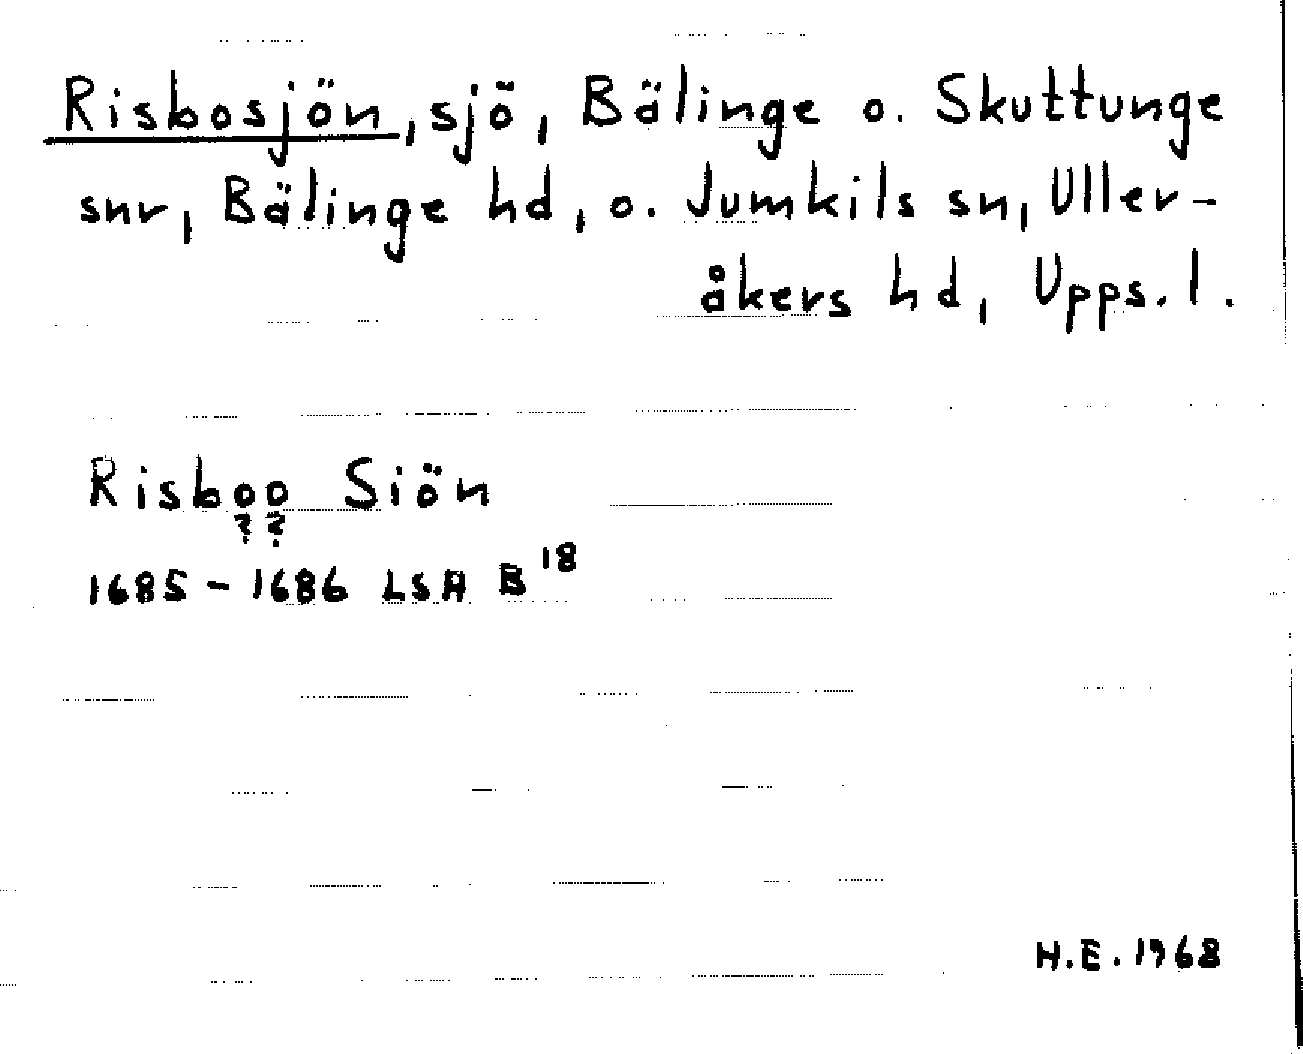 Risbosjön, sjö, Bälinge o. Skuttunge
snr, Bälinge hd, o. Jumkils sn, Uller-
åkers hd, Upps. l.
Risboo Siön
? ?
1685-1686 LSA B 18
H.E. 1968